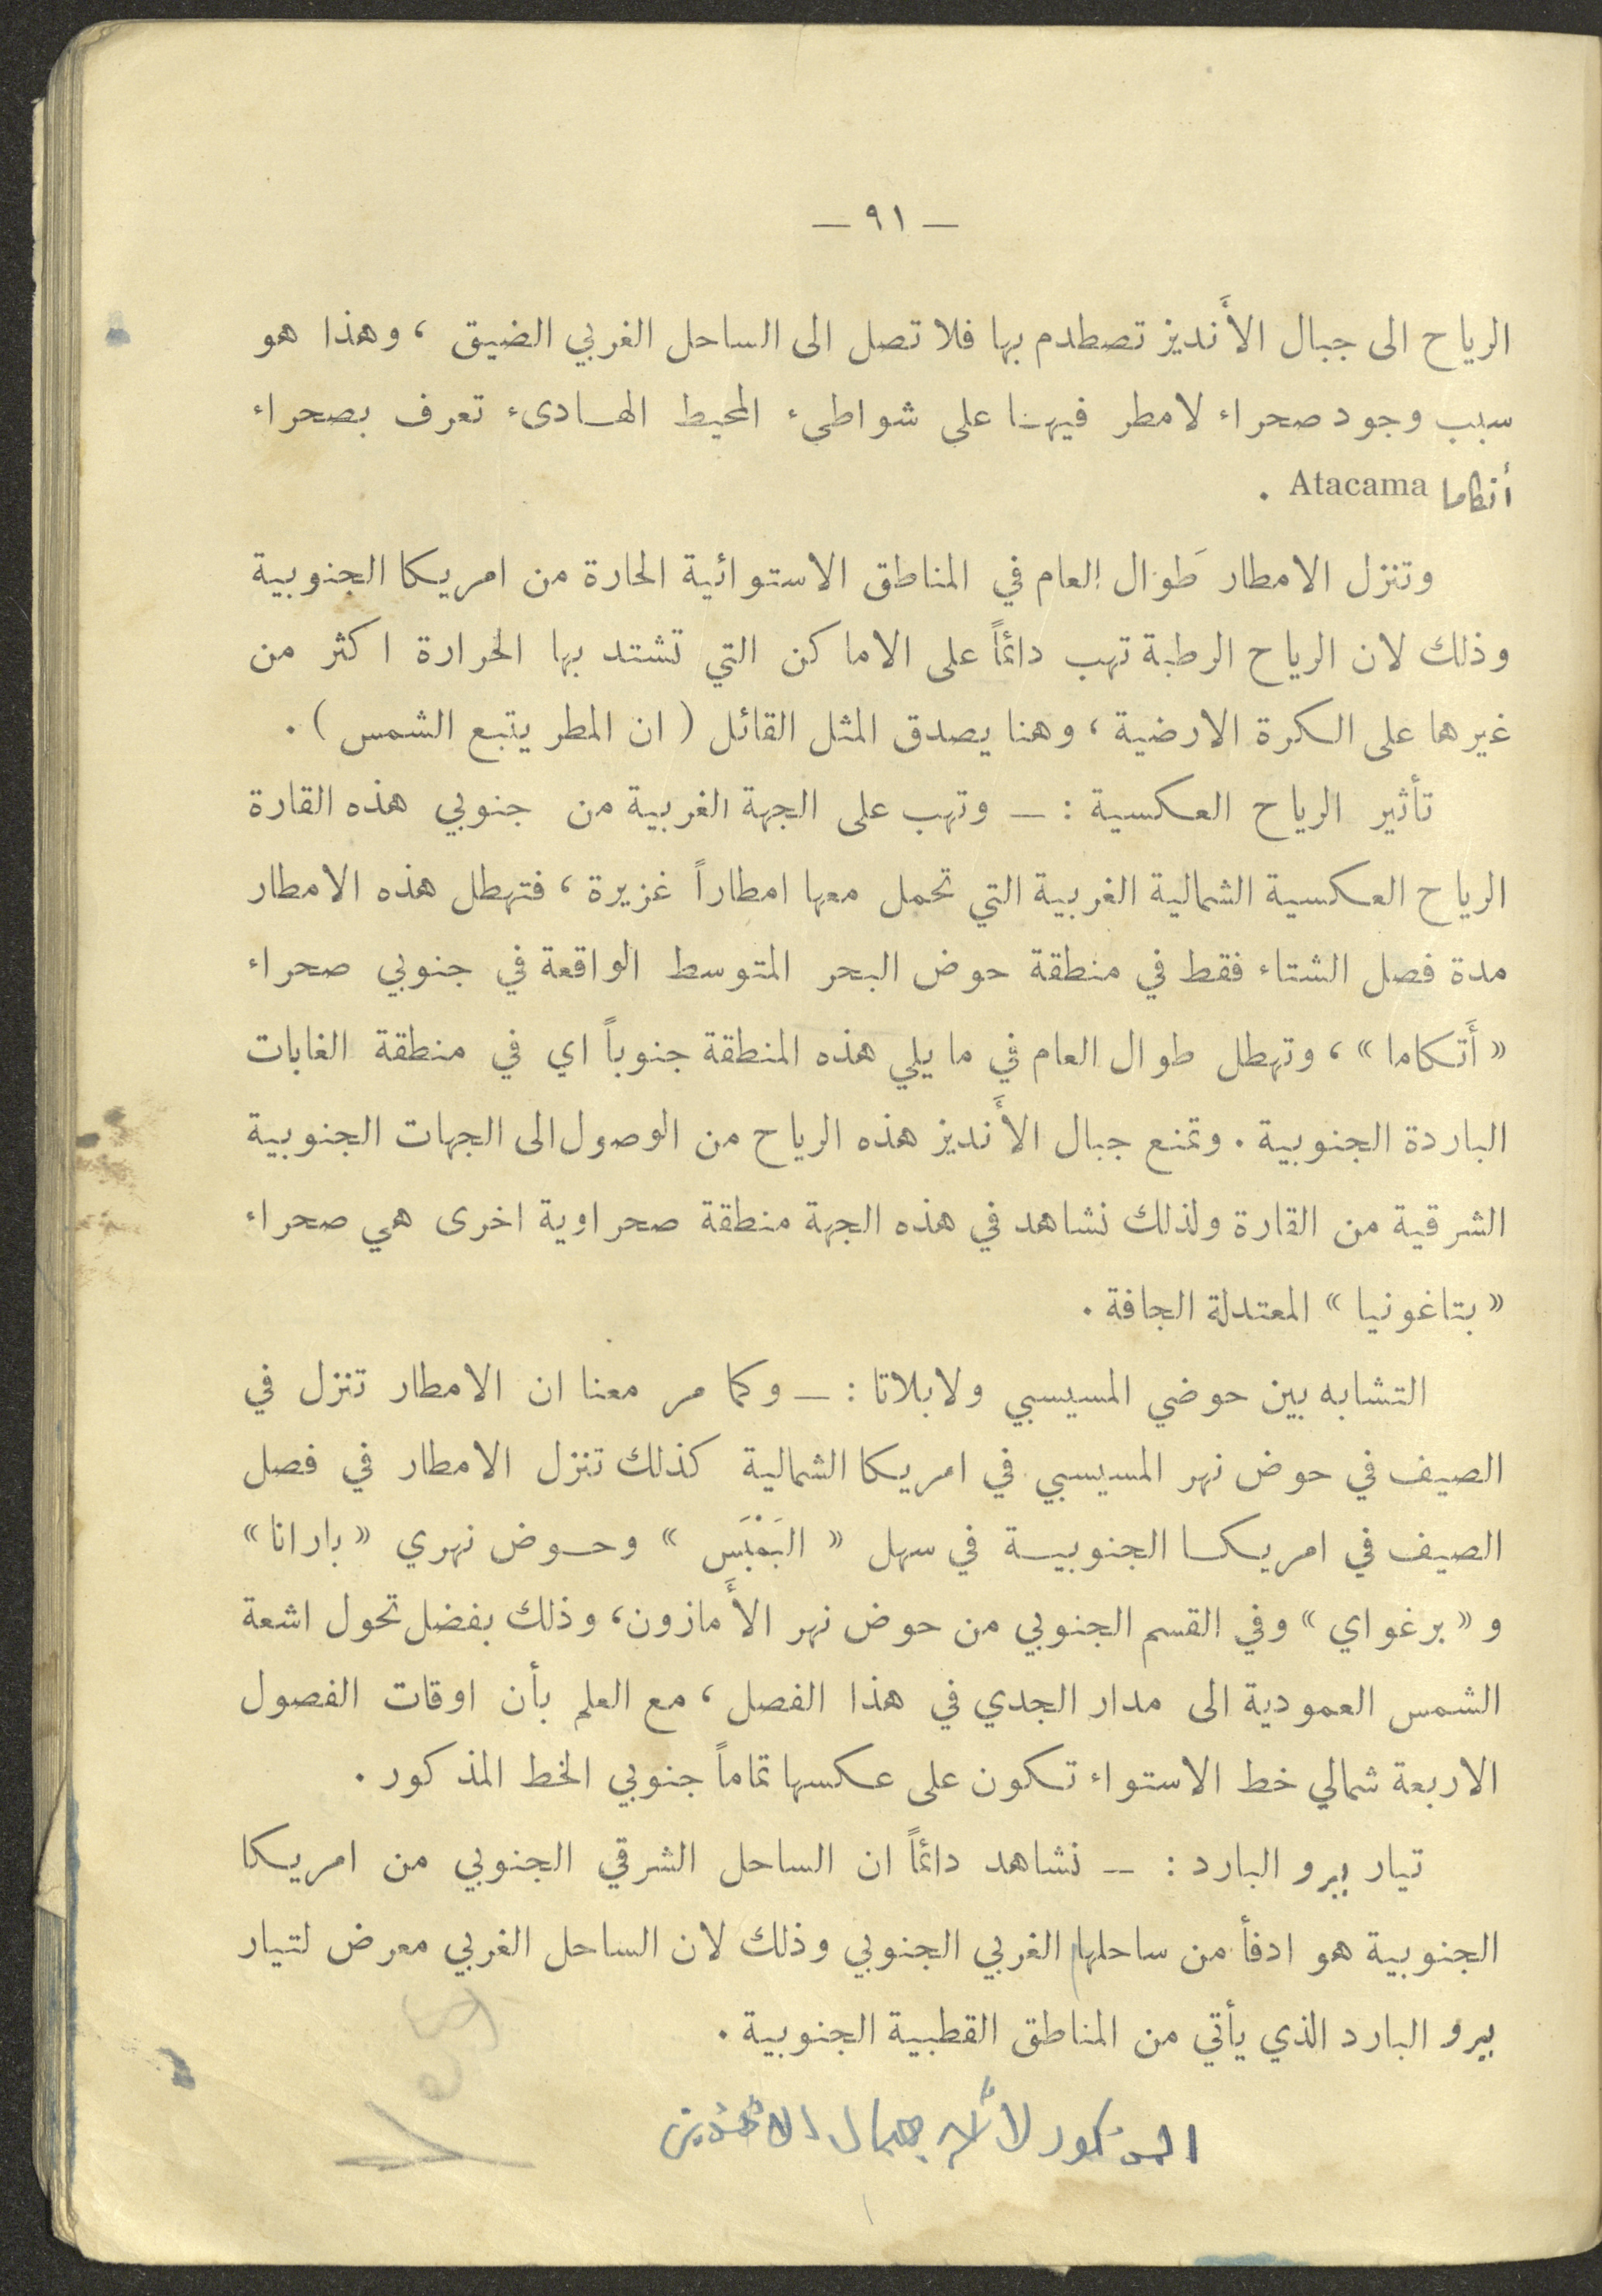 — ٩١ —
الرياح الى جبال الأَنديز تصطدم بها فلا تصل الى الساحل الغربي الضيق ، وهذا هو
سبب وجود صحراء لا مطر فيها على شواطىء المحيط الهادىء تعرف بصحراء
أتكاما Atacama .
وتنزل الامطار طَوال العام في المناطق الاستوائية الحارة من امريكا الجنوبية
وذلك لان الرياح الرطبة تهب دائماً على الاماكن التي تشتد بها الحرارة اكثر من
غيرها على الكرة الارضية ، وهنا يصدق المثل القائل ( ان المطر يتبع الشمس ) .
تأثير الرياح العكسية : — وتهب على الجهة الغربية من جنوبي هذه القارة
الرياح العكسية الشمالية الغربية التي تحمل معها امطاراً غزيرة ، فتهطل هذه الامطار
مدة فصل الشتاء فقط في منطقة حوض البحر المتوسط الواقعة في جنوبي صحراء
« أَتكاما » ، وتهطل طوال العام في ما يلي هذه المنطقة جنوباً اي في منطقة الغابات
الباردة الجنوبية . وتمنع جبال الأَنديز هذه الرياح من الوصول الى الجهات الجنوبية
الشرقية من القارة ولذلك نشاهد في هذه الجهة منطقة صحراوية اخرى هي صحراء
« بتاغونيا » المعتدلة الجافة .
التشابه بين حوضي المسيسبي ولابلاتا : — وكما مر معنا ان الامطار تنزل في
الصيف في حوض نهر المسيسبي في امريكا الشمالية كذلك تنزل الامطار في فصل
الصيف في امريكا الجنوبية في سهل « البَمْبَس » وحوض نهري « بارانا »
و « برغواي » وفي القسم الجنوبي من حوض نهر الأَمازون ، وذلك بفضل تحول اشعة
الشمس العمودية الى مدار الجدي في هذا الفصل ، مع العلم بأن اوقات الفصول
الاربعة شمالي خط الاستواء تكون على عكسها تماماً جنوبي الخط المذكور .
تيار بيرو البارد : — نشاهد دائماً ان الساحل الشرقي الجنوبي من امريكا
الجنوبية هو ادفأ من ساحلها الغربي الجنوبي وذلك لان الساحل الغربي معرض لتيار
بيرو البارد الذي يأتي من المناطق القطبية الجنوبية .
المذكور لأن جبال الانديز